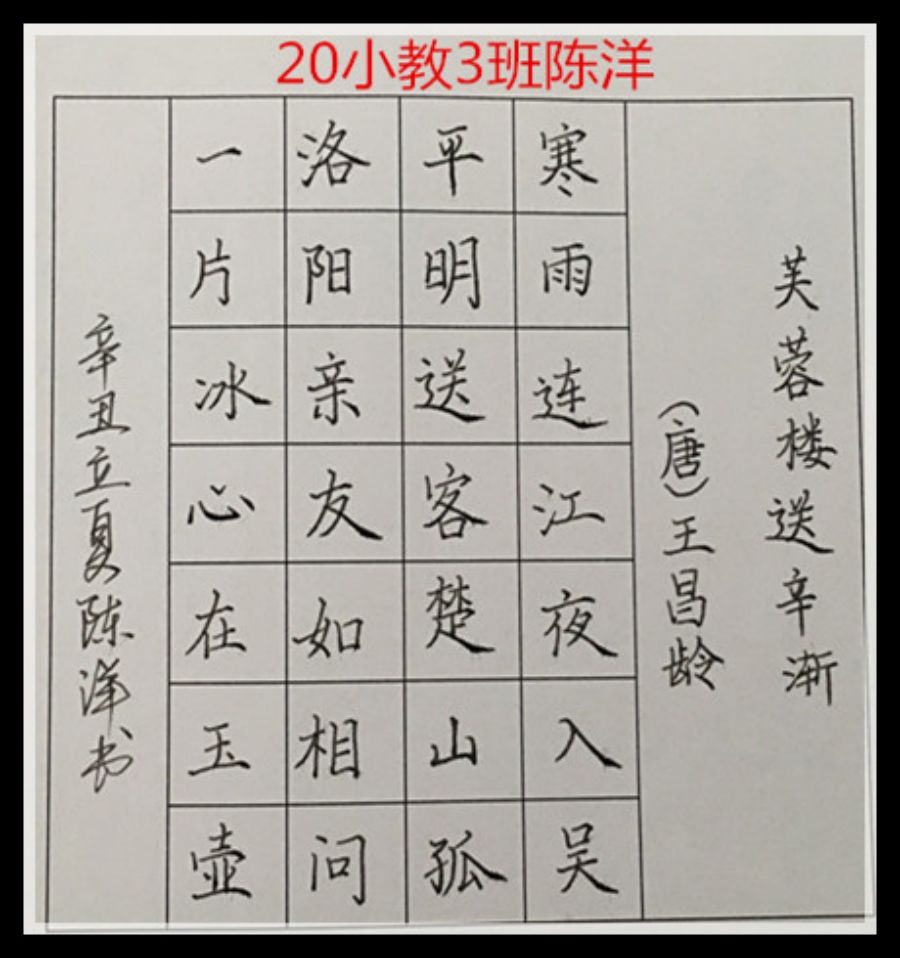 20小教3班陈洋
芙蓉楼送辛渐
(唐)王昌龄
寒雨连江夜入吴
平明送客楚山孤
洛阳亲友如相问
一片冰心在玉壶
辛丑立夏陈洋书